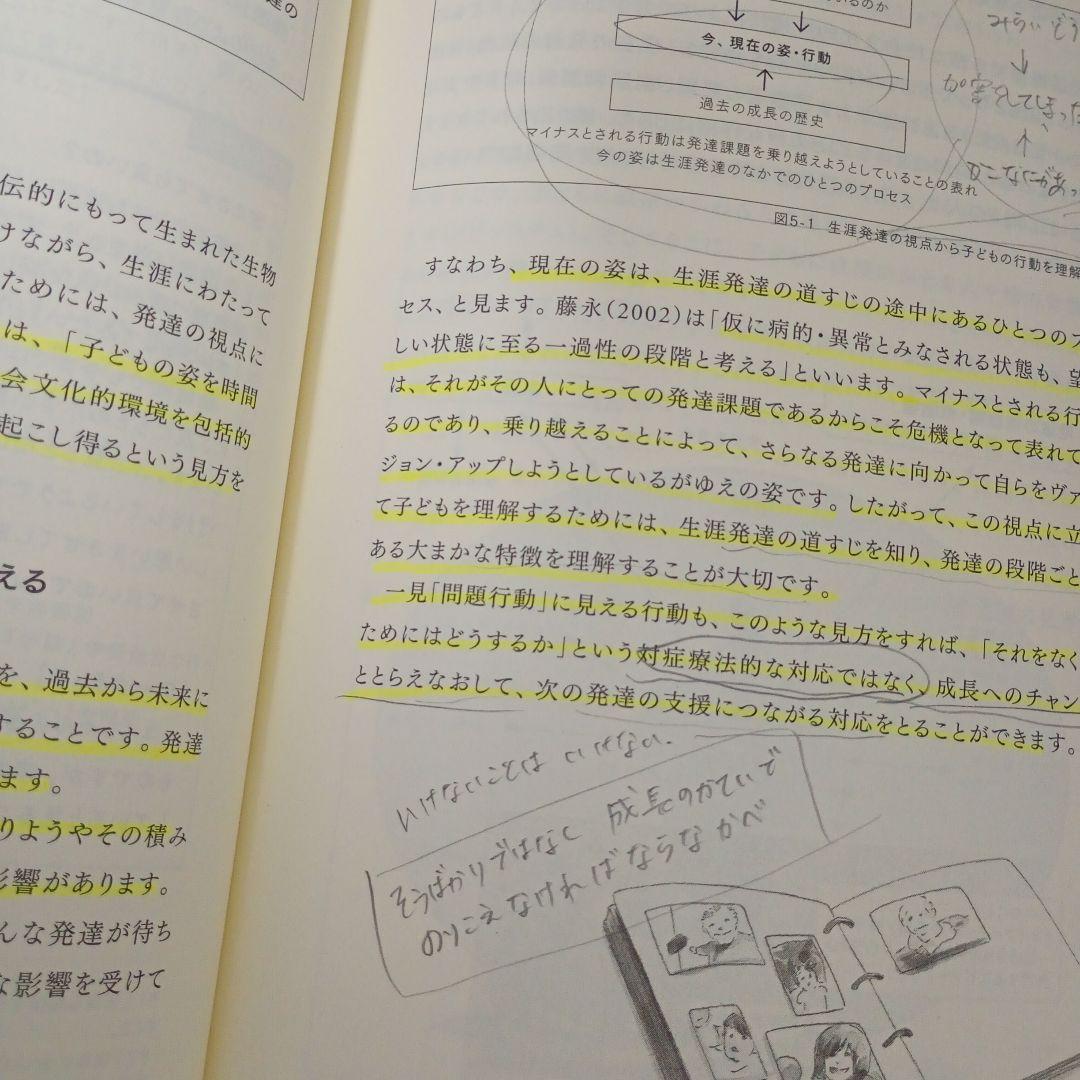 達の
伝的にもって生まれた生物
けながら、生涯にわたって
ためには、発達の視点に
は、「子どもの姿を時間
会文化的環境を包括的
起こし得るという見方を
える
を、過去から未来に
することです。発達
ます。
りようやその積み
影響があります。
んな発達が待ち
な影響を受けて
いるのか
今、現在の姿・行動
過去の成長の歴史
マイナスとされる行動は発達課題を乗り越えようとしていることの表れ
今の姿は生涯発達のなかでのひとつのプロセス
みらい どう
加害をしてしまった
図5-1 生涯発達の視点から子どもの行動を理解
すなわち、現在の姿は、生涯発達の道すじの途中にあるひとつのプ
セス、と見ます。藤永(2002)は「仮に病的・異常とみなされる状態も、望
しい状態に至る一過性の段階と考える」といいます。マイナスとされる行
は、それがその人にとっての発達課題であるからこそ危機となって表れて
るのであり、乗り越えることによって、さらなる発達に向かって自らをヴァ
ジョン・アップしようとしているがゆえの姿です。したがって、この視点に立
て子どもを理解するためには、生涯発達の道すじを知り、発達の段階ごと
ある大まかな特徴を理解することが大切です。
一見「問題行動」に見える行動も、このような見方をすれば、「それをなく
ためにはどうするか」という対症療法的な対応ではなく、成長へのチャン
ととらえなおして、次の発達の支援につながる対応をとることができます。
いけないことは いけない.
そうばかりではなく 成長のかていで
のりこえなければならなかべ